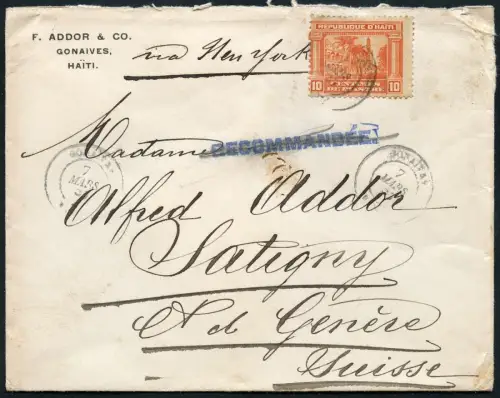 F. ADDOR & CO.
GONAIVES,
HAÏTI.
via New York
REPUBLIQUE D'HAITI
10 CENTIMES DE PIASTRE 10
Madame
RECOMMANDÉE
GONAIVES
7
MARS
GONAIVES
7
MARS
Alfred Addor
Satigny
Ct de Genève
Suisse